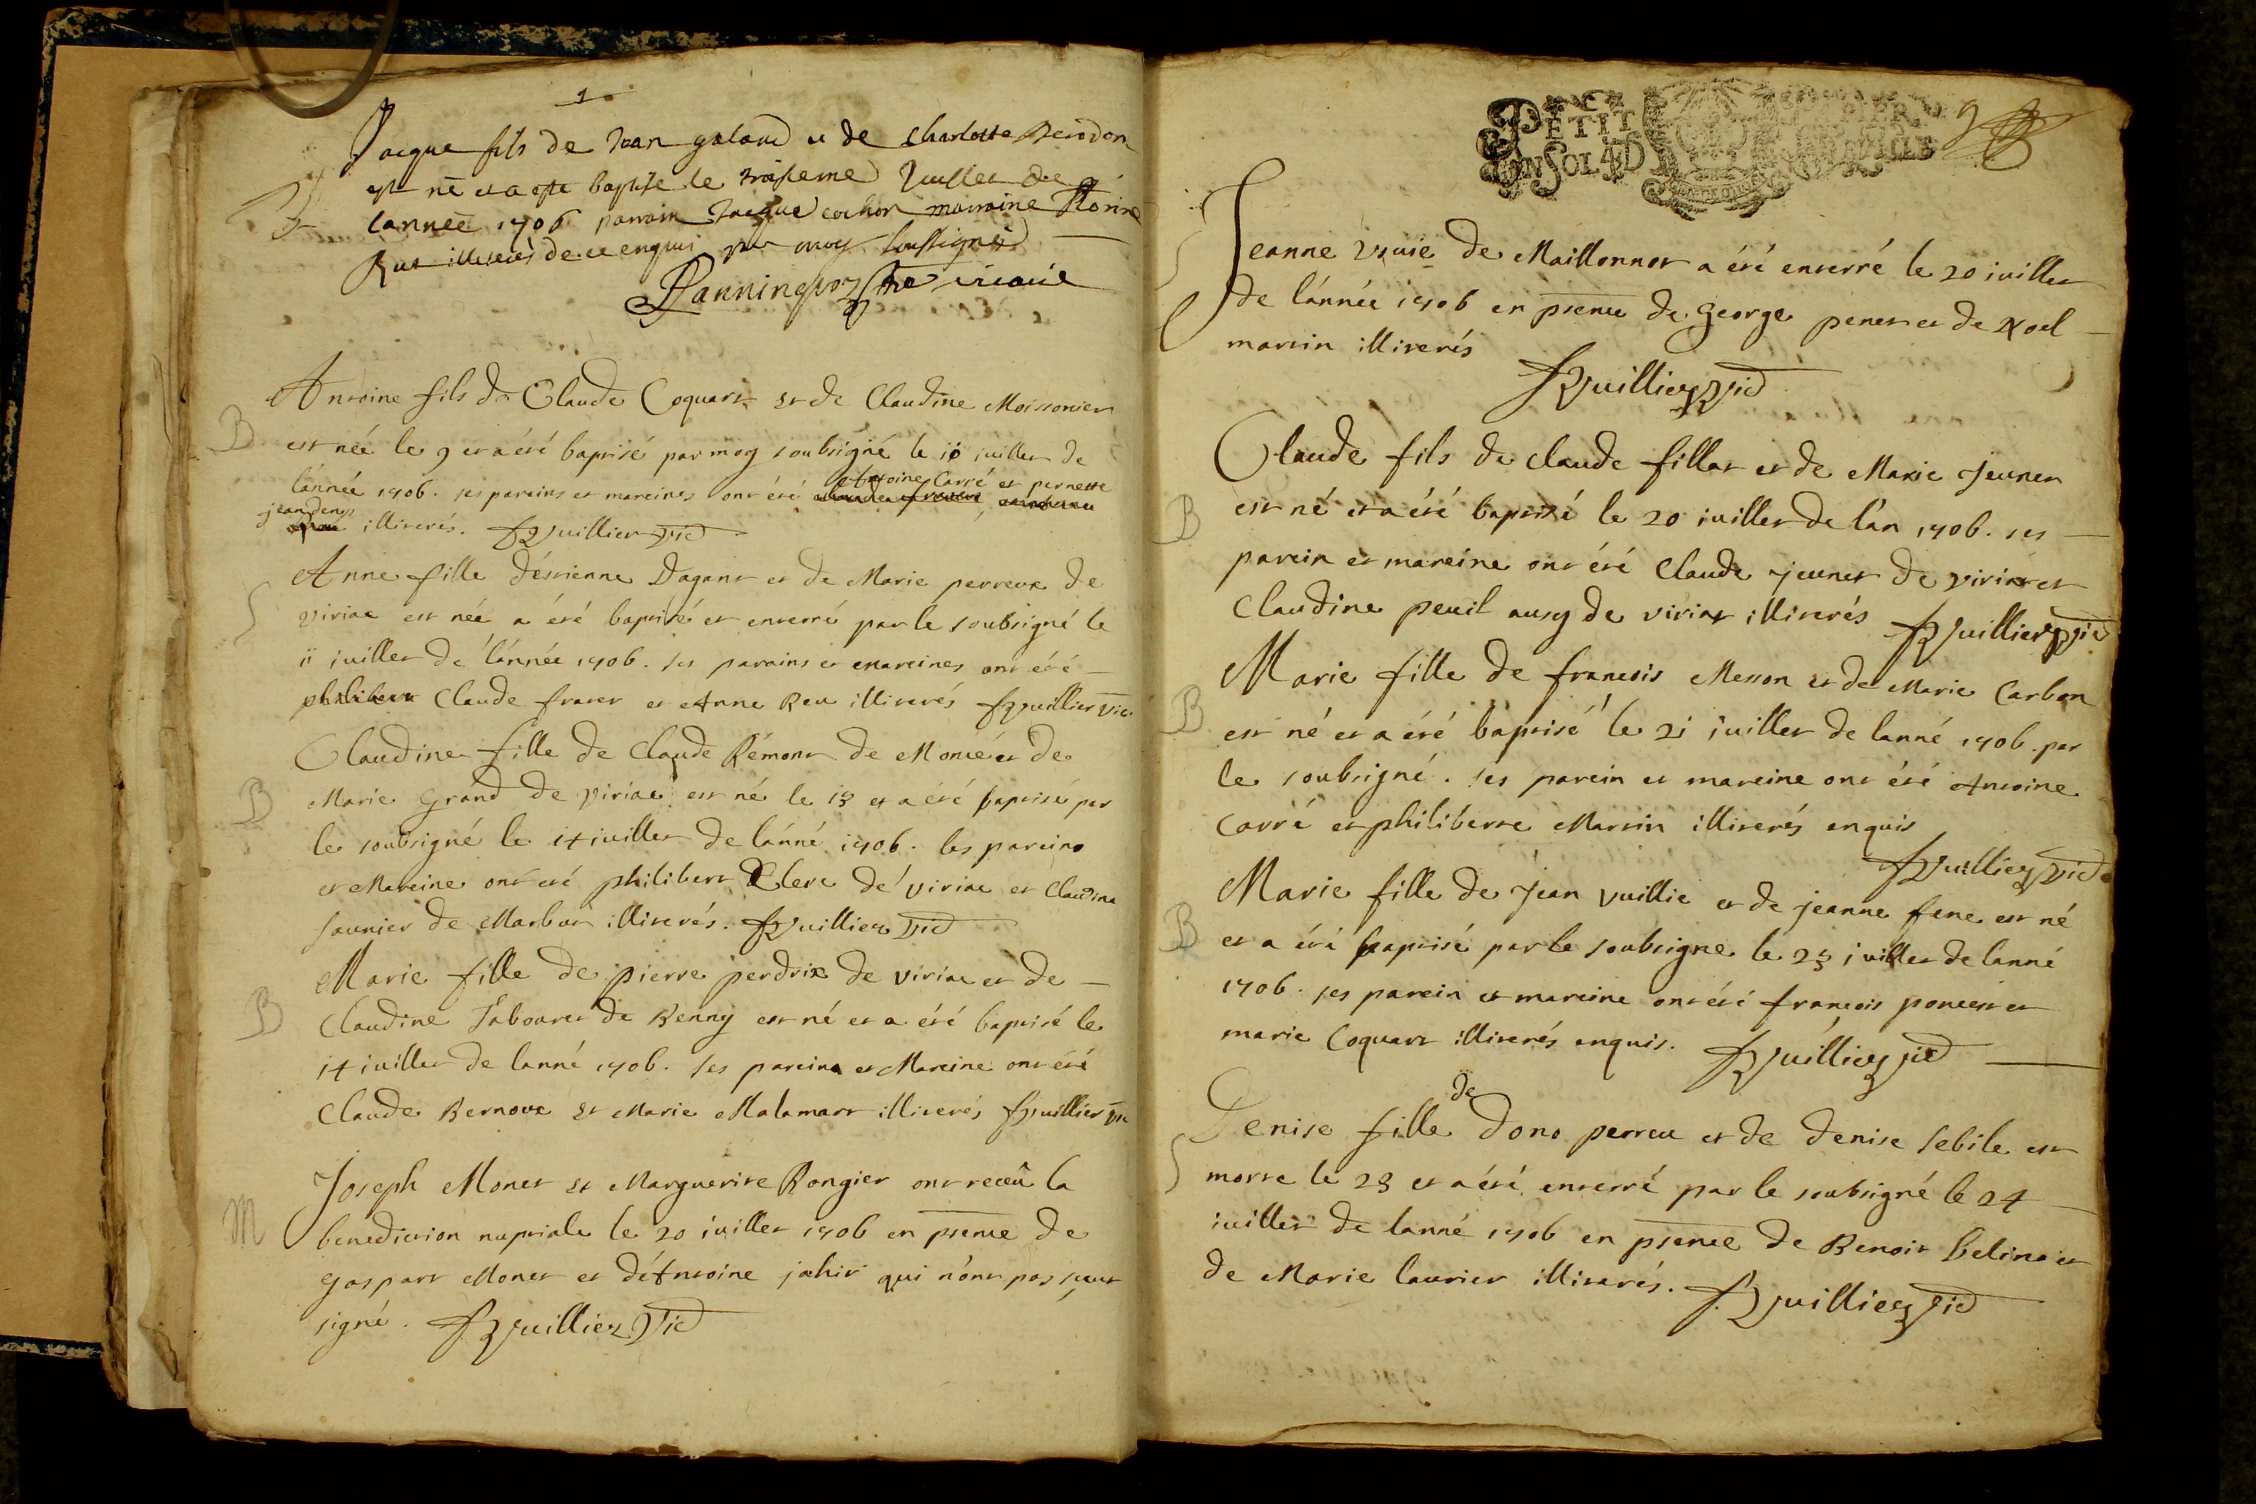 1
Jacque fils de Jean galand et de Charlotte Berodon
est né et a este baptise le troisieme Juillet de
B
lannee 1706 parrain Jacque cochon marraine
illiterés de ce enquis par moy soussigné
vicaire
Antoine fils de Claude Coquart et de Claudine Moissonier
B
est née le 9 et a été baptisé par moy soubsigné le 10 juillet de
l'année 1706. ses pareins et mareines ont été Antoine Carré et pernette
jeandenys illiterés. F Vuillier vic
Anne fille d'étienne Dagant et de Marie perreux de
S
viriac est née a été baptisé et enterré par le soubsigné le
11 juillet de l'année 1706. ses parains et mareines ont été
Claude frater et Anne Reu illiterés F Vuillier vic
Claudine fille de Claude Rémont de Moncé et de
B
Marie Grand de viriac est né le 13 et a été baptisé par
le soubsigné le 14 juillet de l'anné 1706. les pareins
et Mareine ont été philibert Clerc de viriac et Claudine
saunier de Marboz illiterés. F Vuillier vic
Marie fille de pierre perdrix de viriac et de
B
Claudine Tabouret de Benny est né et a été baptisé le
14 juillet de lanné 1706. ses pareins et Mareine ont été
Claude Bernoux et Marie Malamart illiterés F Vuillier vic
Joseph Monet et Marguerite Rongier ont receû la
M
benediction nuptiale le 20 juillet 1706 en psence de
gaspart Monet et d'Antoine jahir qui n'ont pas sceut
signé. F Vuillier vic
PETIT
UN SOL 4 D
9
Jeanne veuve de Maillonnot a été enterré le 20 juillet
S
de l'année 1706 en psence de George penet et de Noel
martin illiterés
F Vuillier vic
Claude fils de claude fillat et de Marie Jeunet
B
est né et a été baptisé le 20 juillet de l'an 1706. ses
parein et mareine ont été Claude jeunet de viriat et
Claudine peuil ausy de viriat illiterés F Vuillier vic
Marie fille de francois Messon et de Marie Carbon
B
est né et a été baptisé le 21 juillet de lanné 1706. par
le soubsigné. ses parein et mareine ont été Antoine
Carré et philiberte Martin illiterés enquis
F Vuillier vic
Marie fille de Jean vuillie et de jeanne fene est né
B
et a été baptisé par le soubsigne le 23 juillet de lanné
1706. ses parein et mareine ont été francois poncet et
marie Coquart illiterés enquis. F Vuillier vic
de
Denise fille dono perreu et de denise sebile est
S
morte le 23 et a été enterré par le soubsigné le 24
juillet de lanné 1706 en psence de Benoit belino et
de Marie laurier illiterés. F Vuillier vic